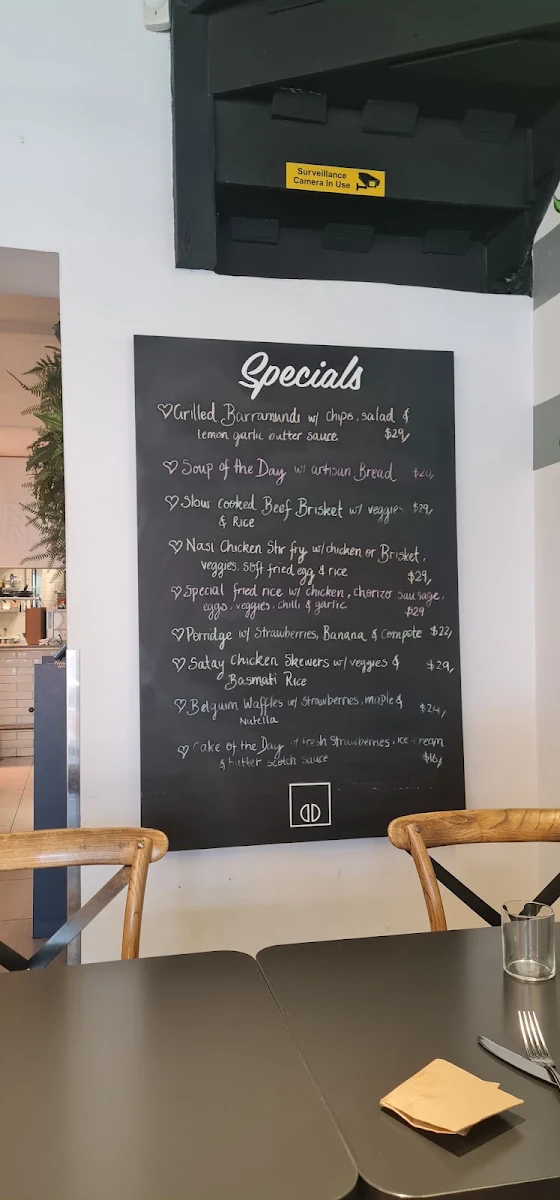 Surveillance
Camera in Use
Specials
♡Grilled Barramundi w/ chips, salad &
lemon garlic butter sauce $29/
♡ Soup of the Day w/ artisan Bread $20/
♡ Slow cooked Beef Brisket w/ veggies $29/
& Rice
♡ Nasi Chicken Stir fry w/ chicken or Brisket,
veggies, soft fried egg & rice $29/
♡ Special fried rice w/ chicken, chorizo sausage,
eggs, veggies, chilli & garlic $29
♡ Porridge w/ Strawberries, Banana & Compote $22/
♡ Satay Chicken Skewers w/ veggies & $29/
Basmati Rice
♡ Belgium Waffles w/ Strawberries, maple & $24/
Nutella
♡ Cake of the Day fresh Strawberries, ice cream
& butter scotch sauce $16/